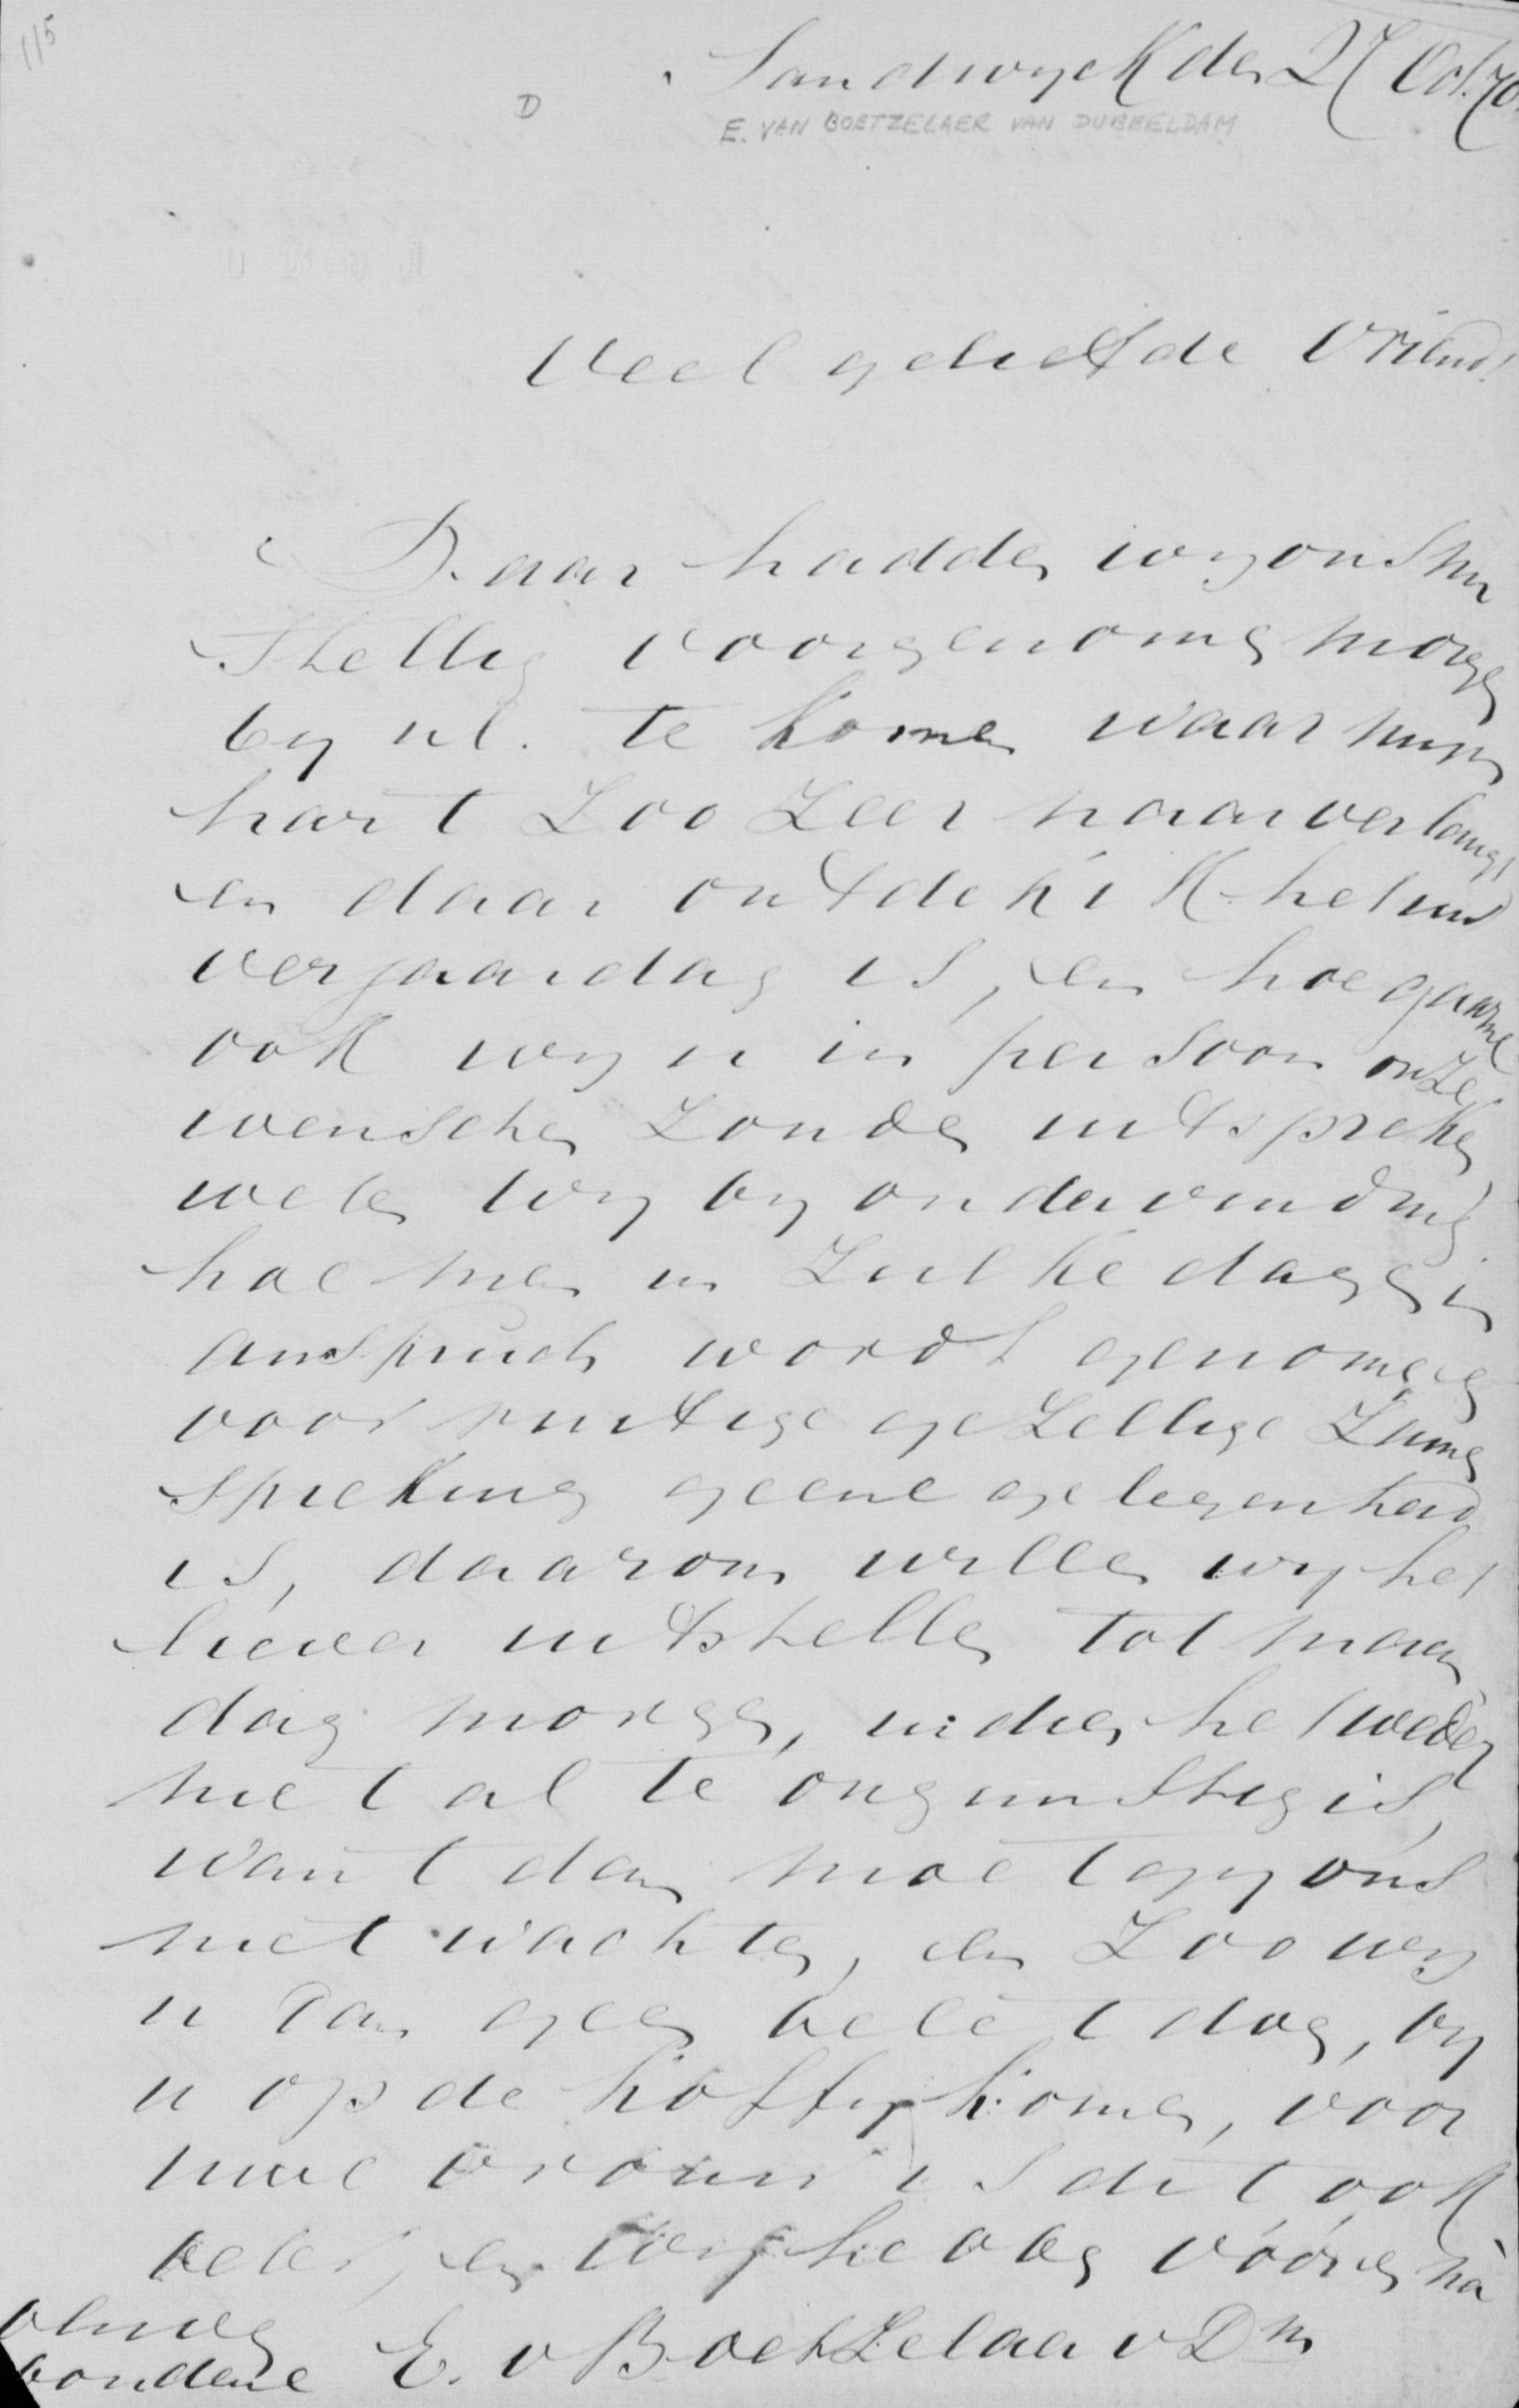 115
Sandwyck den 27 Oct. 70.
D
E. VAN BOETZELAER VAN DUBBELDAM
Veel geliefde Vriend!
Daar hadden wy ons zu
stellig voorgenomen morgen
by ul. te komen waar myn
hart zoo zeer naar verlangt
en daar ontdek ik het uw
verjaardag is, en hoe gaarne
ook wy u in persoon onze
wenschen zouden uitspreken
weten wy by ondervinding
hoe men in zulke dagen in
anspruch wordt genomen en
voor rustige gezellige zamen
spreking geene gelegenheid
is, daarom willen wy het
liever uitstellen tot maan
dag morgen, indien het weder
niet al te ongunstig is,
want dan moet gy ons
niet wachten, en zoo wy
u dan geen belet doen, by
u op de koffy komen, voor
uwe vrouw is dit ook
beter, en wy hebben vóór en na
E. v Boetzelaer v Dm